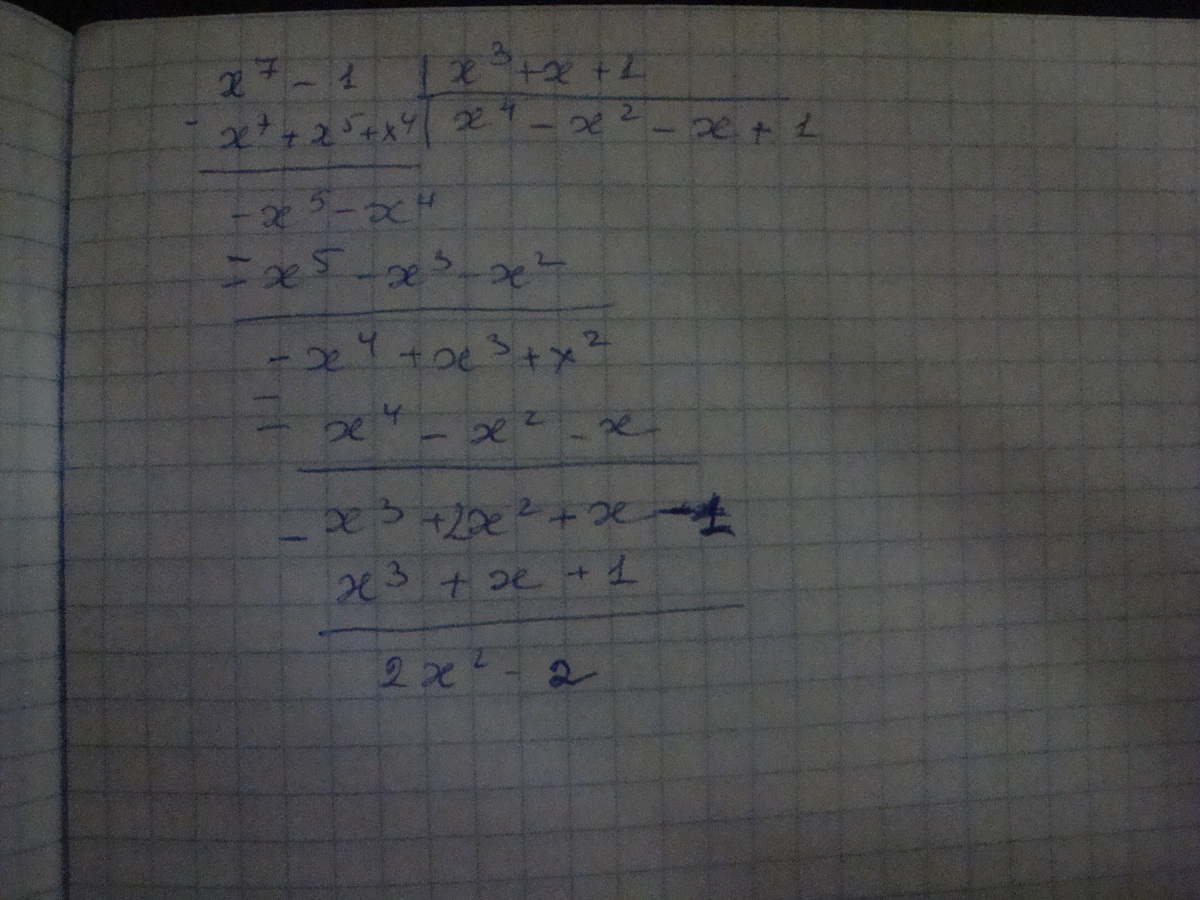 x⁷ - 1 | x³ + x + 1
- x⁷ + x⁵ + x⁴ | x⁴ - x² - x + 1
- x⁵ - x⁴
- - x⁵ - x³ - x²
- x⁴ + x³ + x²
- - x⁴ - x² - x
x³ + 2x² + x - 1
- x³ + x + 1
2x² - 2